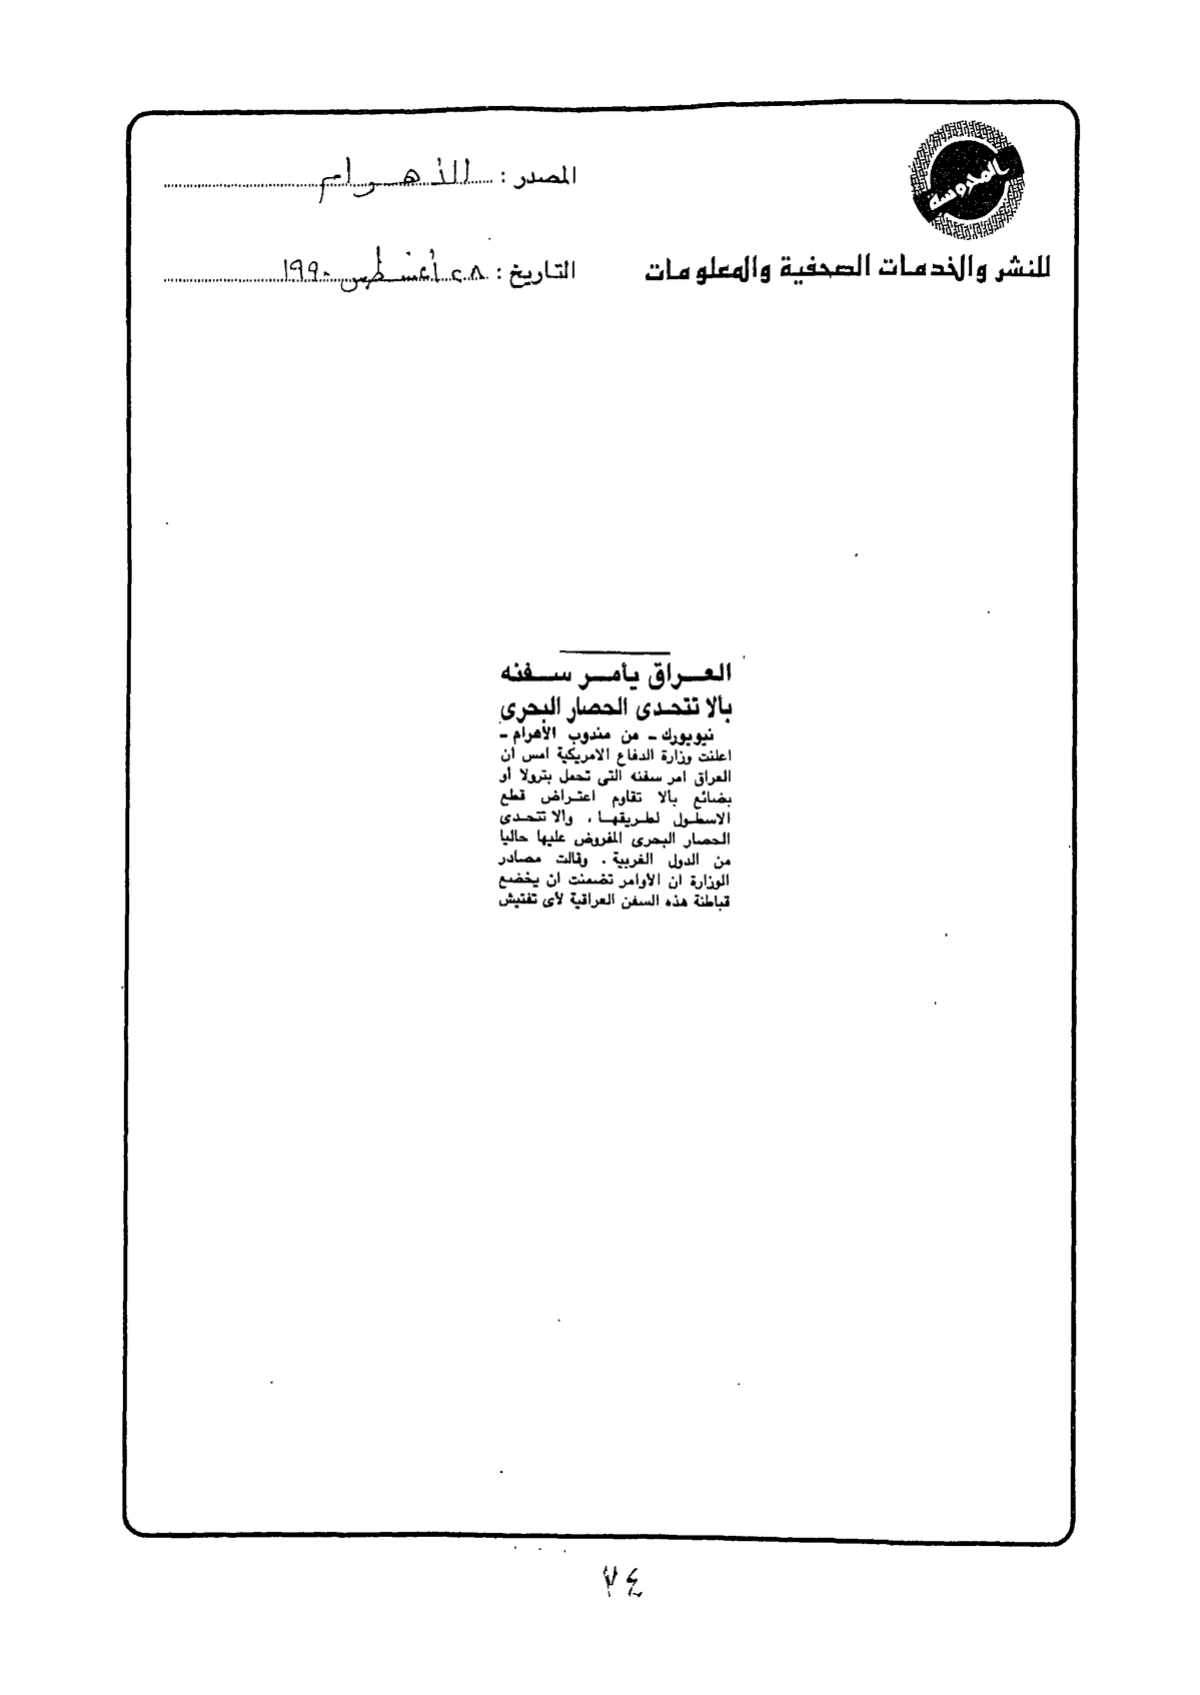 المحروسة
للنشر والخدمات الصحفية والمعلومات
المصدر : الأهرام
التاريخ : ٢٨ أغسطس ١٩٩٠
العراق يأمر سفنه
بألا تتحدى الحصار البحرى
نيويورك - من مندوب الأهرام -
اعلنت وزارة الدفاع الامريكية امس ان
العراق امر سفنه التى تحمل بترولا أو
بضائع بألا تقاوم اعتراض قطع
الاسطول لطريقها ، وألا تتحدى
الحصار البحرى المفروض عليها حاليا
من الدول الغربية . وقالت مصادر
الوزارة ان الأوامر تضمنت ان يخضع
قباطنة هذه السفن العراقية لأى تفتيش
٧٤